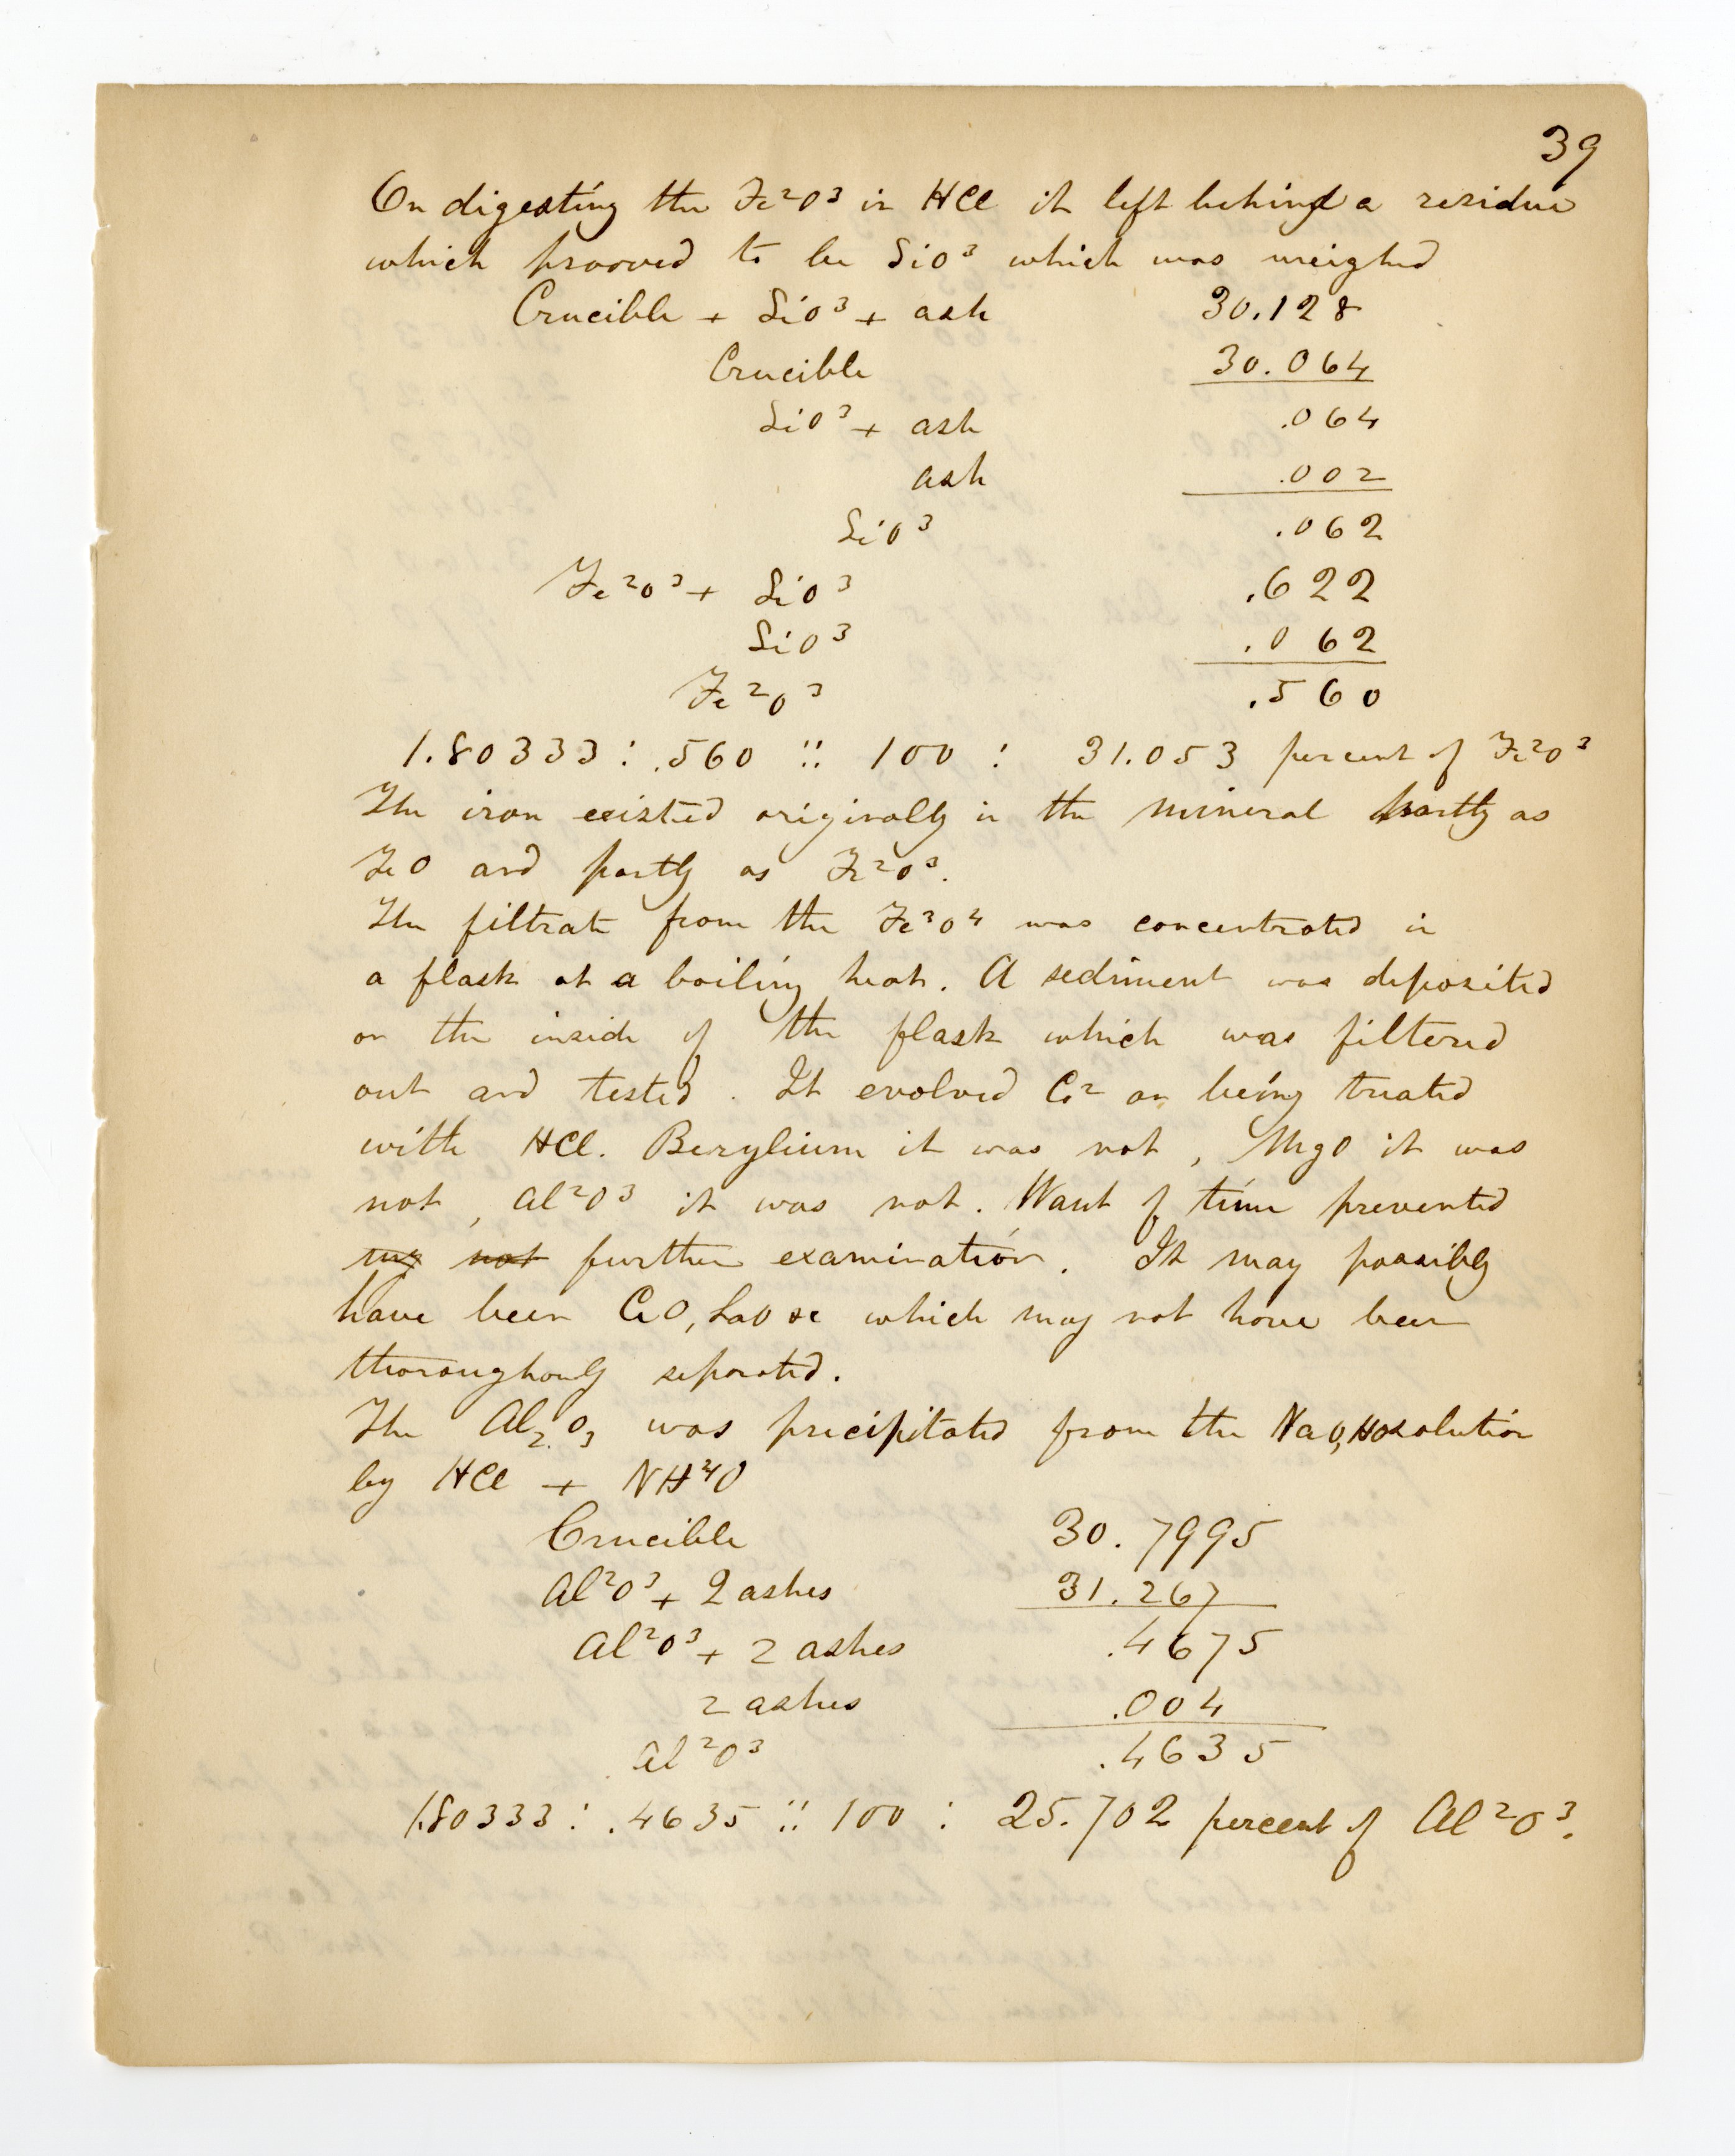 39
On digesting the Fe²O³ in HCl it left behind a residue
which prooved to be SiO³ which was weighed
Crucible + SiO³ + ash 30.128
Crucible 30.064
SiO³ + ash .064
ash .002
SiO³ .062
Fe²O³ + SiO³ .622
SiO³ .062
Fe²O³ .560
1.80333 : .560 :: 100 : 31.053 percent of Fe²O³
The iron existed originally in the mineral partly as
FeO and partly as Fe²O³.
The filtrate from the Fe³O⁴ was concentrated in
a flask at a boiling heat. A sediment was deposited
on the inside of the flask which was filtered
out and tested. It evolved Co² on being treated
with HCl. Berylium it was not, MgO it was
not, Al²O³ it was not. Want of time prevented
my not further examination. It may possibly
have been CeO, LaO &c which may not have been
thoroughouly separated.
The Al₂O₃ was precipitated from the NaO,HO solution
by HCl + NH⁴O
Crucible 30.7995
Al²O³ + 2 ashes 31.267
Al²O³ + 2 ashes .4675
2 ashes .004
Al²O³ .4635
1.80333 : .4635 :: 100 : 25.702 percent of Al²O³.